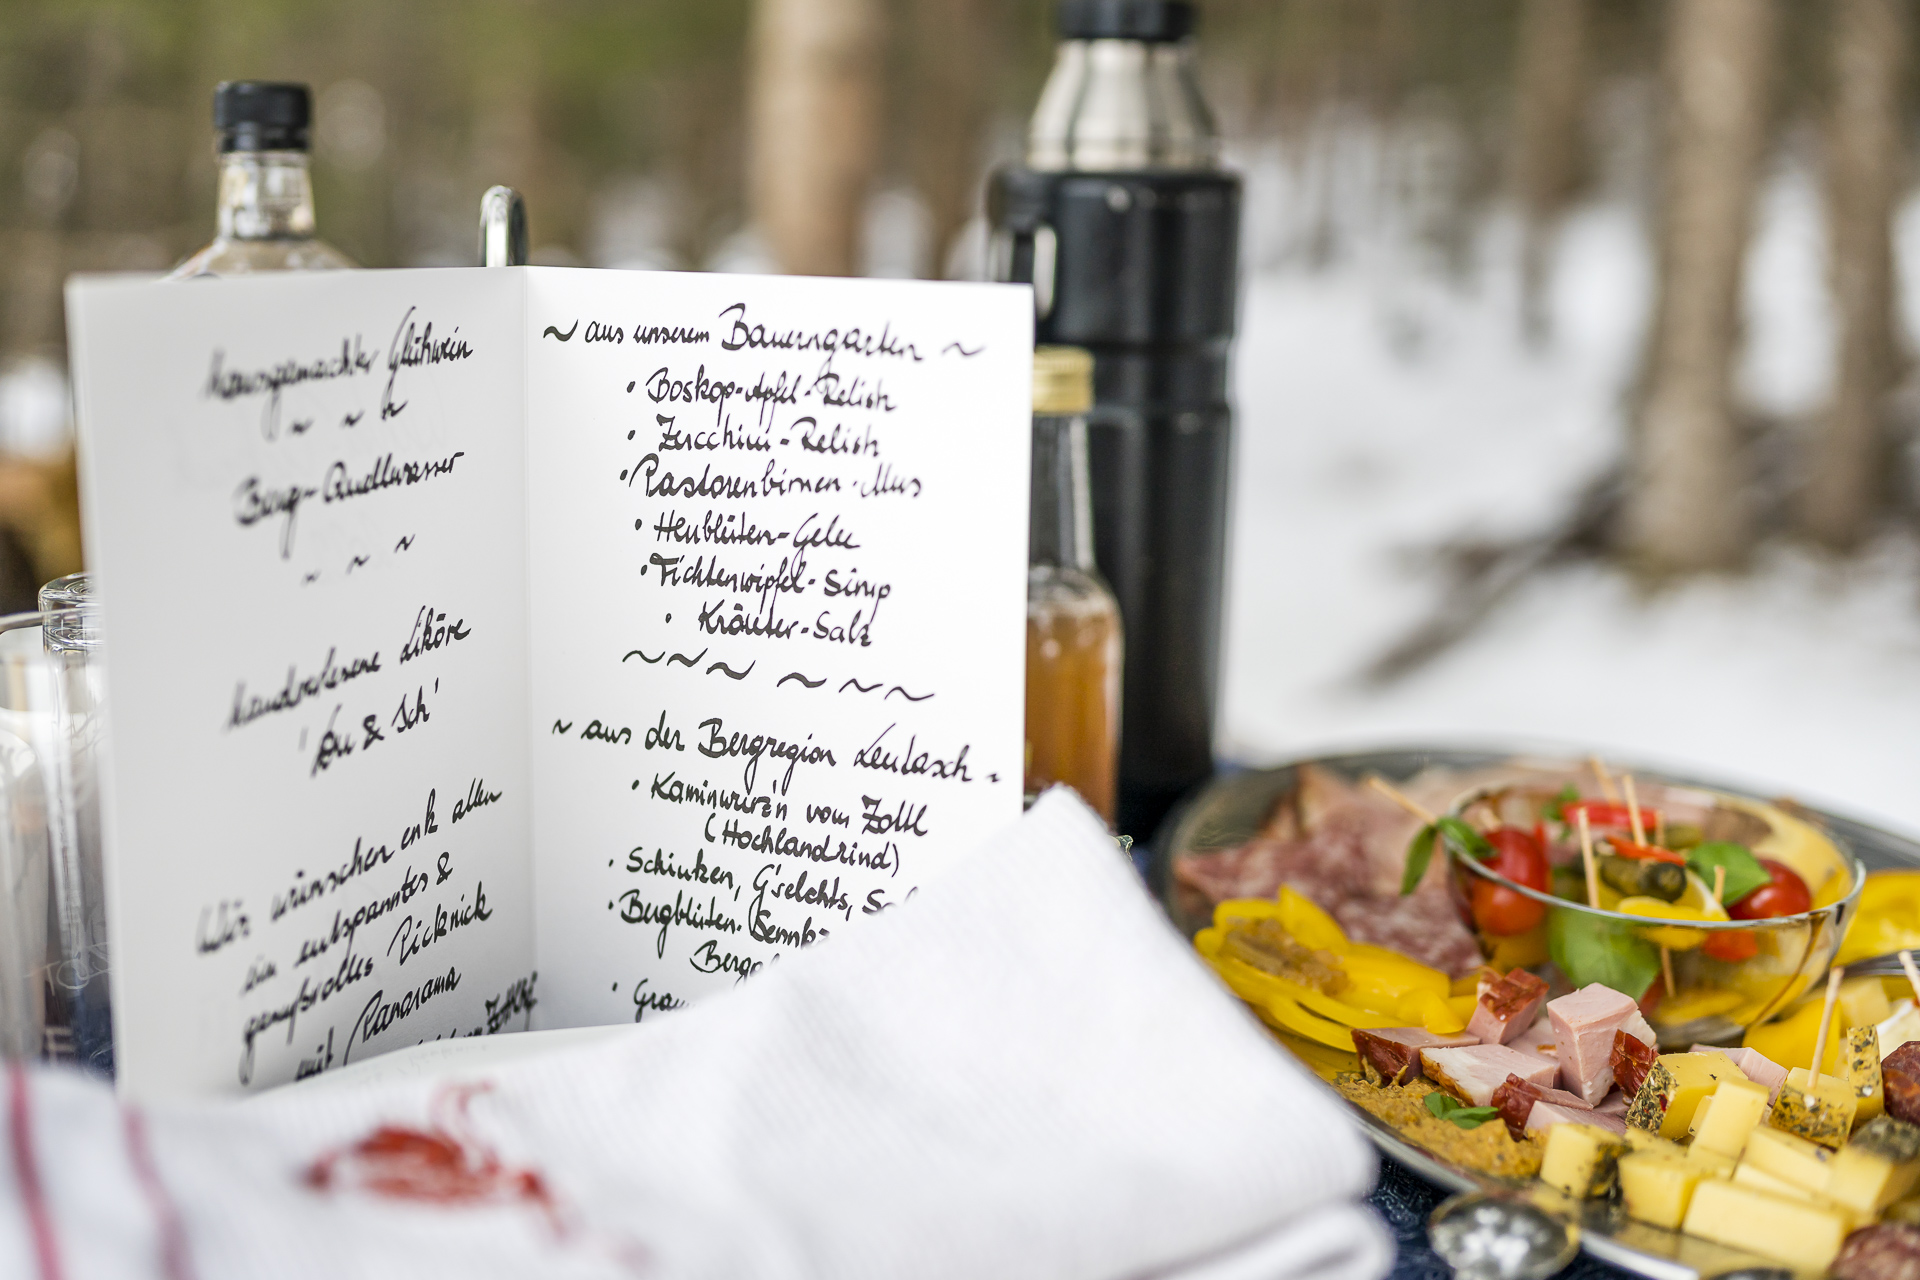 hausgemachter Glühwein
~ ~ ~
Berg-Quellwasser
~ ~ ~
handverlesene Liköre
'Du & Ich'
Wir wünschen enk allen
ein entspanntes &
genußvolles Picknick
mit Panorama
~ aus unserem Bauerngarten ~
• Boskop-Apfel-Relish
• Zucchini-Relish
• Pastorenbirnen-Mus
• Heublüten-Gelee
• Fichtenwipfel-Sirup
• Kräuter-Salz
~~~ ~~~
~ aus der Bergregion Leutasch ~
• Kaminwurz'n vom Zottl
(Hochlandrind)
• Schinken, G'selchts,
• Bergblüten-